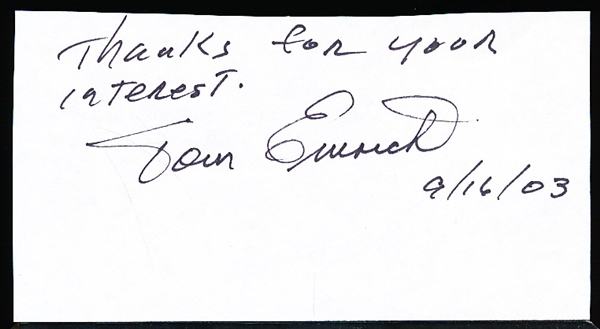 Thanks for your
interest.
Tom Emrich
9/16/03